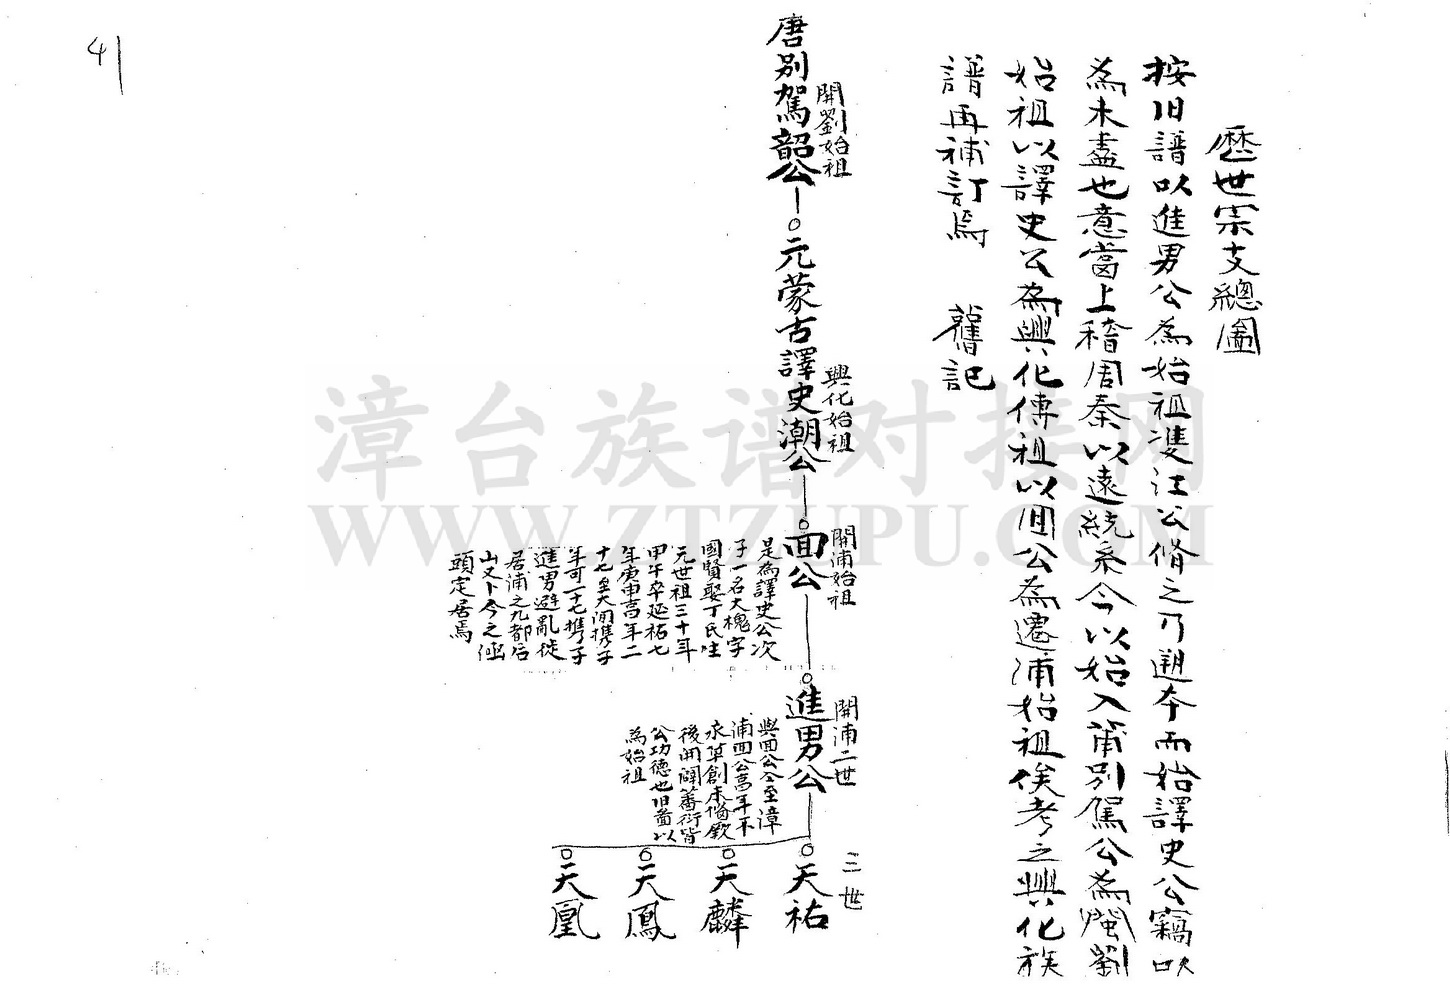 歷世宗支總圖
按旧譜以進男公為始祖雙江公脩之乃遡本而始譯史公竊以
為未盡也意當上稽周秦以遠統系今以始入莆別駕公為閩劉
始祖以譯史公為興化傳祖以面公為遷浦始祖俟考之興化族
譜再補訂焉 舊記
開劉始祖
唐別駕韶公
興化始祖
元蒙古譯史潮公
開浦始祖
面公
是為譯史公次
子一名大槐字
國賢娶丁氏生
元世祖三十年
甲午卒延祐七
年庚申高年二
十七至大間携子
年可一十七携子
進男避亂徙
居浦之九都后
山又卜今之
頭定居焉
開浦二世
進男公
與面公仝至漳
浦面公高年不
永草創未備厥
後開闢蕃衍皆
公功德也旧啚以
為始祖
三世
天祐
天麟
天鳳
天凰
41
漳台族谱对接网
WWW.ZTZUPU.COM